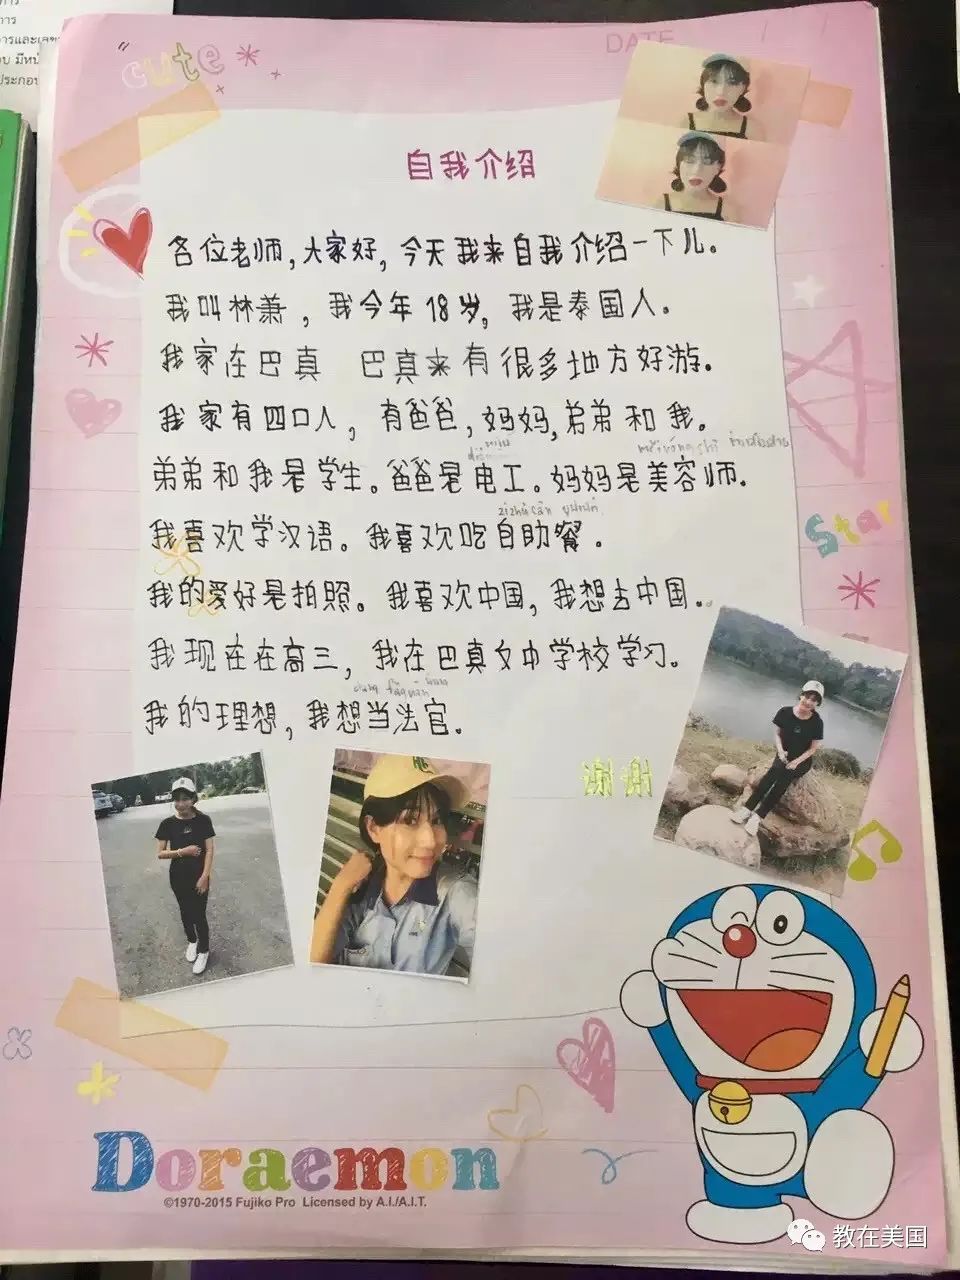 การ
การ
ารและเลข
cute
DATE / /
自我介绍
各位老师,大家好,今天我来自我介绍一下儿。
我叫林萧,我今年18岁,我是泰国人。
我家在巴真 巴真来有很多地方好游。
我家有四口人,有爸爸,妈妈,弟弟和我。
měi róng shī
弟弟和我是学生。爸爸是电工。妈妈是美容师.
zìzhùcān
我喜欢学汉语。我喜欢吃自助餐.
Star
我的爱好是拍照。我喜欢中国,我想去中国.
我现在在高三,我在巴真文中学校学习。
dāng fǎguān
我的理想,我想当法官.
谢谢
Doraemon
©1970-2015 Fujiko Pro Licensed by A.I./A.I.T.
教在美国